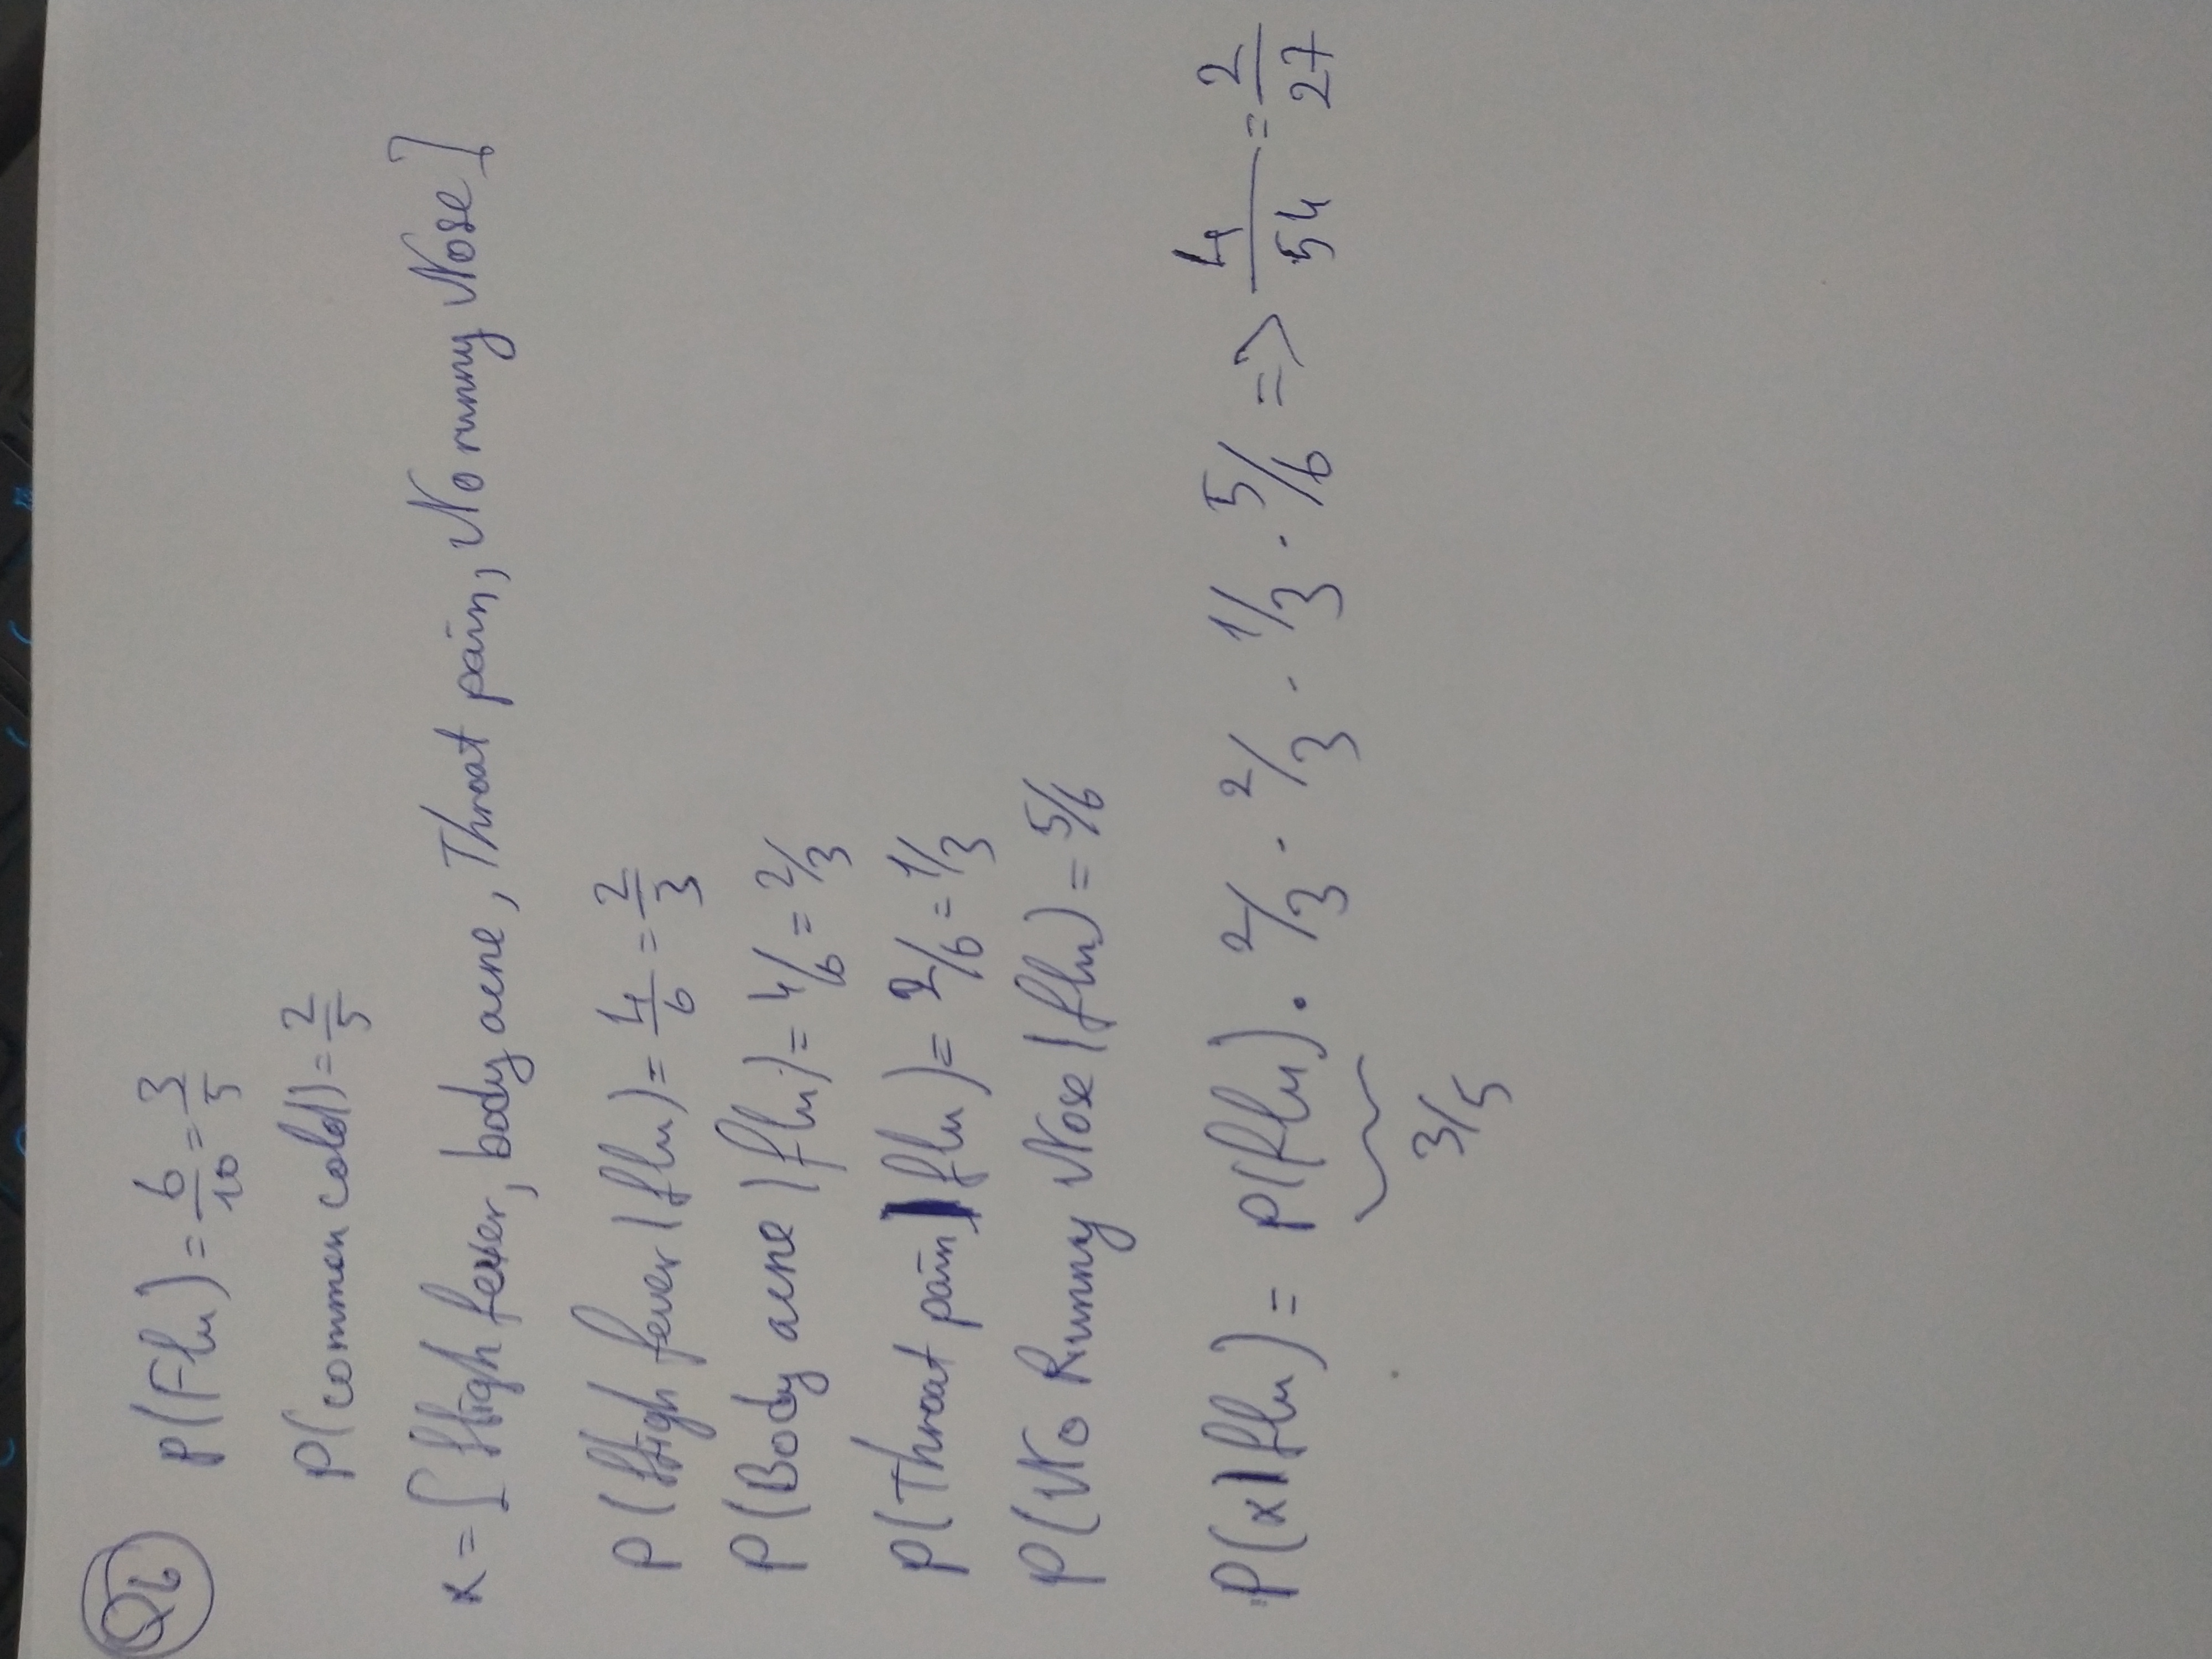 Q6
P(Flu) = 6/10 = 3/5
P(common cold) = 2/5
x = [High fever, body acne, Throat pain, No runny Nose]
P(High fever | flu) = 4/6 = 2/3
P(Body acne | flu) = 4/6 = 2/3
P(Throat pain | flu) = 2/6 = 1/3
P(No Runny Nose | flu) = 5/6
P(x | flu) = P(flu) . 2/3 . 2/3 . 1/3 . 5/6 => 4/54 = 2/27
3/5